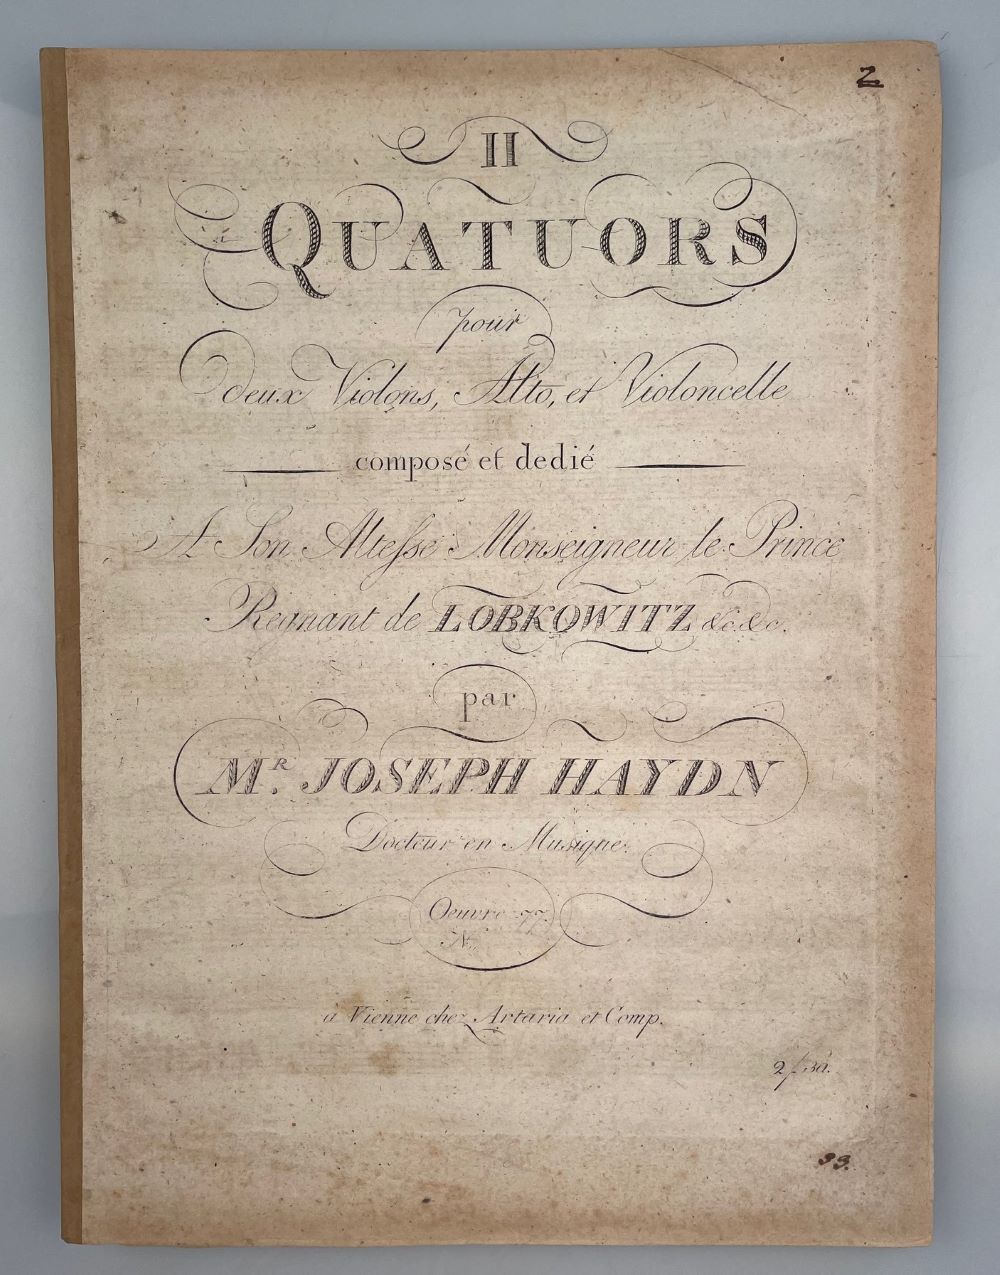 2
II
QUATUORS
pour
deux Violons, Alto, et Violoncelle
composé et dedié
A Son Altesse Monseigneur le Prince
Regnant de LOBKOWITZ &c. &c.
par
MR. JOSEPH HAYDN
Docteur en Musique.
Oeuvre 77.
N.
à Vienne chez Artaria et Comp.
2f. 30.